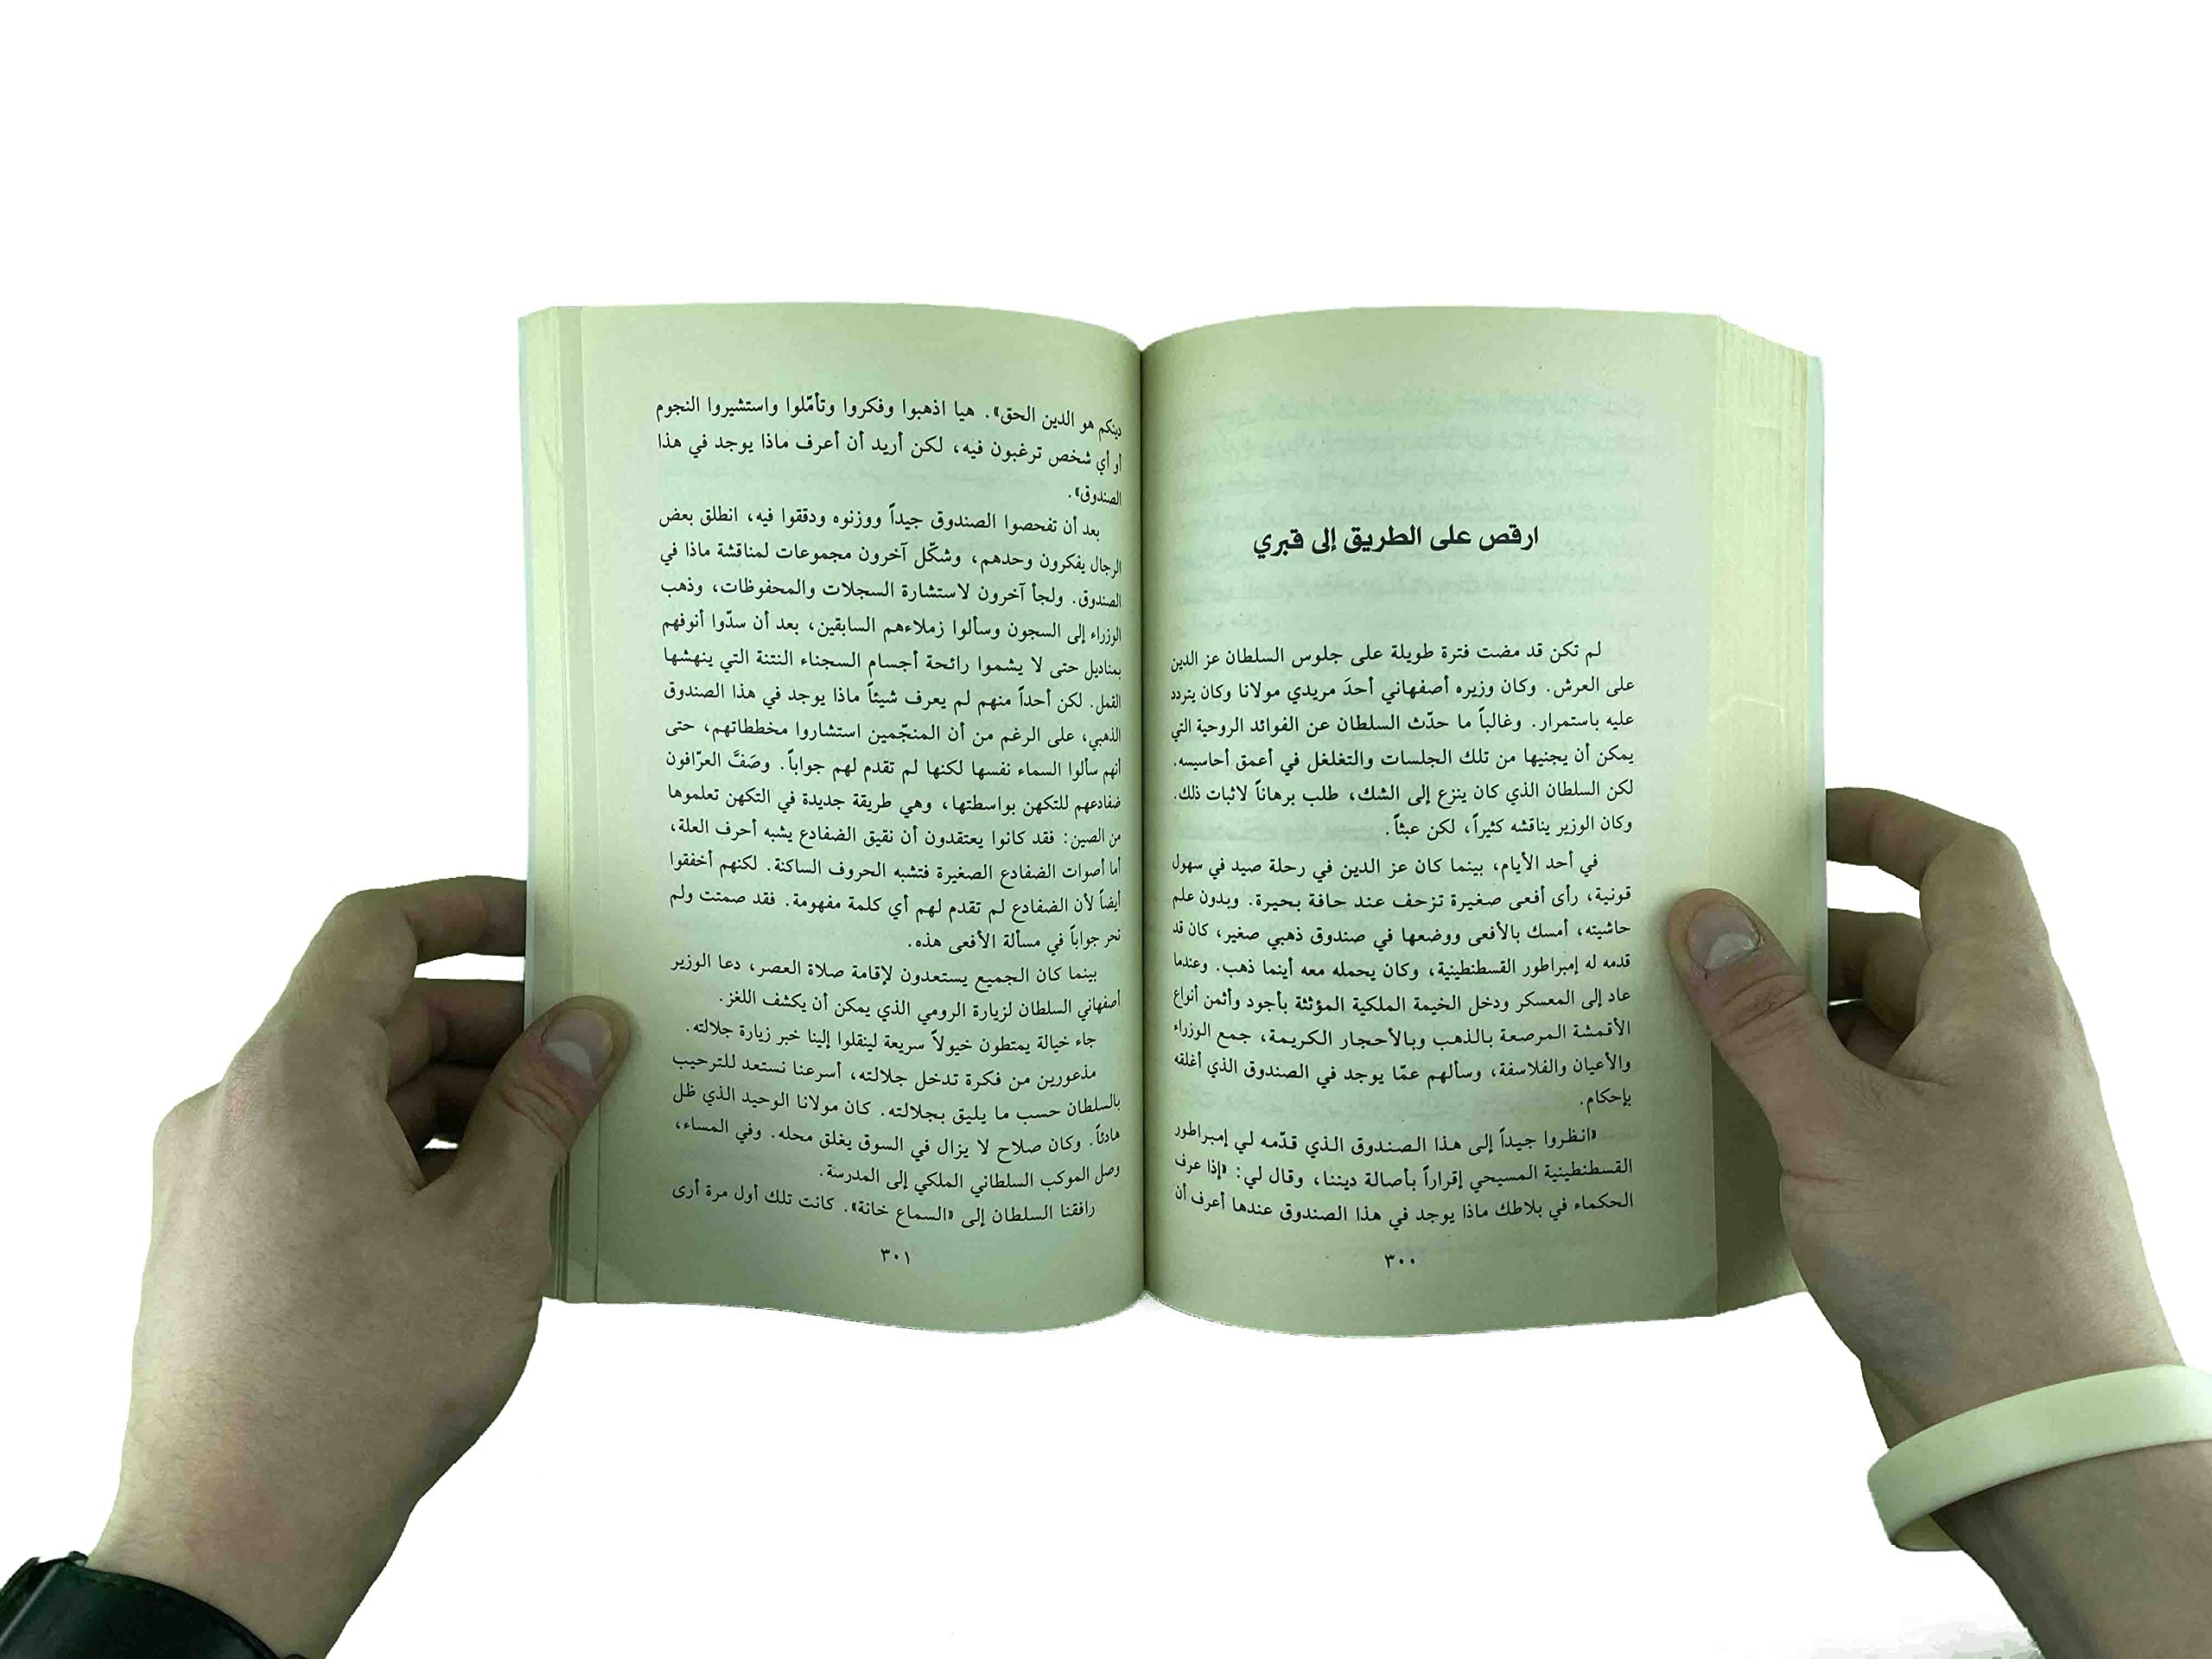 ارقص على الطريق إلى قبري
لم تكن قد مضت فترة طويلة على جلوس السلطان عز الدين
على العرش. وكان وزيره أصفهاني أحدَ مريدي مولانا وكان يتردد
عليه باستمرار. وغالباً ما حدّث السلطان عن الفوائد الروحية التي
يمكن أن يجنيها من تلك الجلسات والتغلغل في أعمق أحاسيسه.
لكن السلطان الذي كان ينزع إلى الشك، طلب برهاناً لاثبات ذلك.
وكان الوزير يناقشه كثيراً، لكن عبثاً.
في أحد الأيام، بينما كان عز الدين في رحلة صيد في سهول
قونية، رأى أفعى صغيرة تزحف عند حافة بحيرة. وبدون علم
حاشيته، أمسك بالأفعى ووضعها في صندوق ذهبي صغير، كان قد
قدمه له إمبراطور القسطنطينية، وكان يحمله معه أينما ذهب. وعندما
عاد إلى المعسكر ودخل الخيمة الملكية المؤثثة بأجود وأثمن أنواع
الأقمشة المرصعة بالذهب وبالأحجار الكريمة، جمع الوزراء
والأعيان والفلاسفة، وسألهم عمّا يوجد في الصندوق الذي أغلقه
بإحكام.
«انظروا جيداً إلى هذا الصندوق الذي قدّمه لي إمبراطور
القسطنطينية المسيحي إقراراً بأصالة ديننا، وقال لي: «إذا عرف
الحكماء في بلاطك ماذا يوجد في هذا الصندوق عندها أعرف أن
٣٠٠
دينكم هو الدين الحق». هيا اذهبوا وفكروا وتأمّلوا واستشيروا النجوم
أو أي شخص ترغبون فيه، لكن أريد أن أعرف ماذا يوجد في هذا
الصندوق».
بعد أن تفحصوا الصندوق جيداً ووزنوه ودققوا فيه، انطلق بعض
الرجال يفكرون وحدهم، وشكّل آخرون مجموعات لمناقشة ماذا في
الصندوق. ولجأ آخرون لاستشارة السجلات والمحفوظات، وذهب
الوزراء إلى السجون وسألوا زملاءهم السابقين، بعد أن سدّوا أنوفهم
بمناديل حتى لا يشموا رائحة أجسام السجناء النتنة التي ينهشها
القمل. لكن أحداً منهم لم يعرف شيئاً ماذا يوجد في هذا الصندوق
الذهبي، على الرغم من أن المنجّمين استشاروا مخططاتهم، حتى
أنهم سألوا السماء نفسها لكنها لم تقدم لهم جواباً. وصَفَّ العرّافون
ضفادعهم للتكهن بواسطتها، وهي طريقة جديدة في التكهن تعلموها
من الصين: فقد كانوا يعتقدون أن نقيق الضفادع يشبه أحرف العلة،
أما أصوات الضفادع الصغيرة فتشبه الحروف الساكنة. لكنهم أخفقوا
أيضاً لأن الضفادع لم تقدم لهم أي كلمة مفهومة. فقد صمتت ولم
تحر جواباً في مسألة الأفعى هذه.
بينما كان الجميع يستعدون لإقامة صلاة العصر، دعا الوزير
أصفهاني السلطان لزيارة الرومي الذي يمكن أن يكشف اللغز.
جاء خيالة يمتطون خيولاً سريعة لينقلوا إلينا خبر زيارة جلالته.
مذعورين من فكرة تدخل جلالته، أسرعنا نستعد للترحيب
بالسلطان حسب ما يليق بجلالته. كان مولانا الوحيد الذي ظل
هادئاً. وكان صلاح لا يزال في السوق يغلق محله. وفي المساء،
وصل الموكب السلطاني الملكي إلى المدرسة.
رافقنا السلطان إلى «السماع خانة». كانت تلك أول مرة أرى
٣٠١